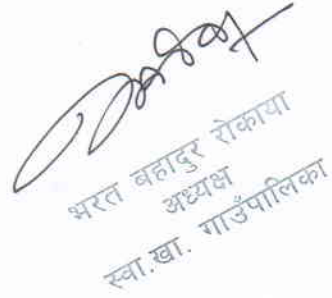 भरत बहादुर रोकाया
अध्यक्ष
स्वा.खा. गाउँपालिका